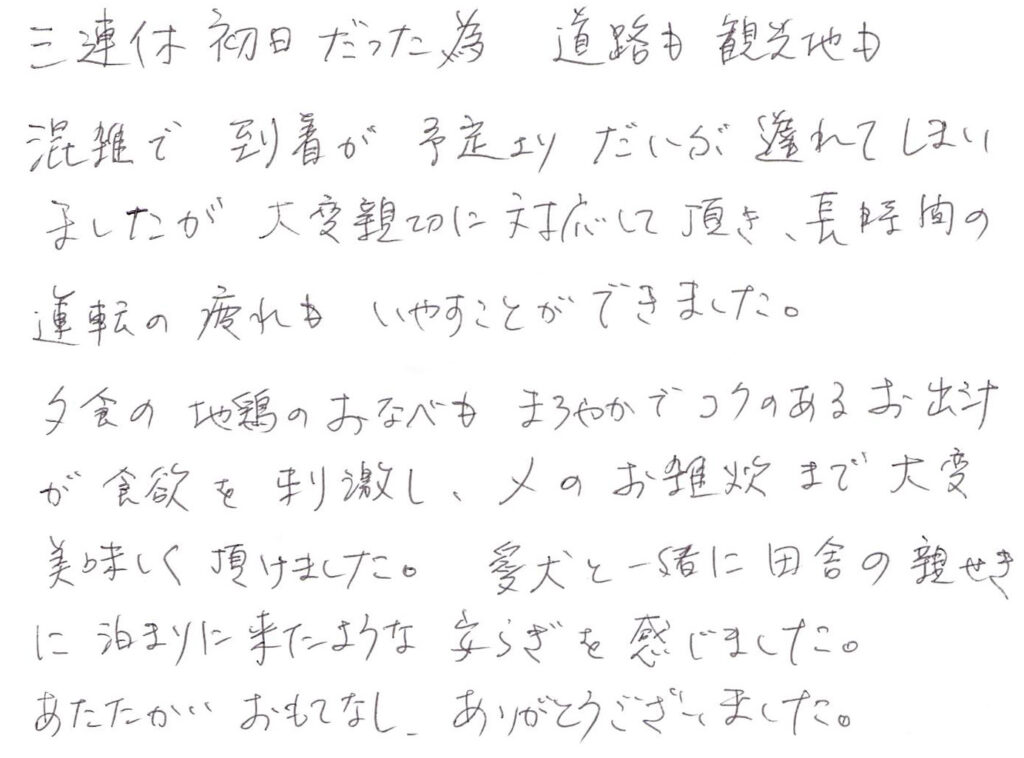 三連休初日だった為 道路も観光地も
混雑で 到着が 予定より だいぶ遅れてしまい
ましたが 大変親切に対応して頂き、長時間の
運転の疲れも いやすことができました。
夕食の 地鶏のおなべも まろやかでコクのあるお出汁
が食欲を刺激し、〆のお雑炊まで大変
美味しく頂けました。 愛犬と一緒に田舎の親せき
に泊まりに来たような安らぎを感じました。
あたたかい おもてなし ありがとうございました。